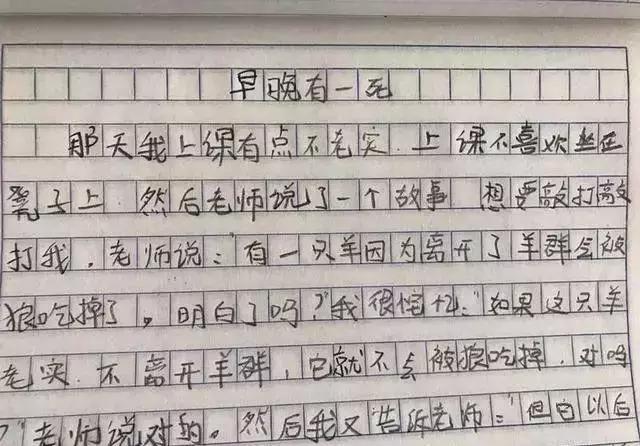 早晚有一死
那天我上课有点不老实.上课不喜欢坐在
凳子上.然后老师说了一个故事 想要敲打敲
打我.老师说:"有一只羊因为离开了羊群会被
狼吃掉了。明白了吗?"我很忙:"如果这只羊
老实.不离开羊群,它就不会被狼吃掉.对吗
?"老师说对的。然后我又告诉老师:"但它以后